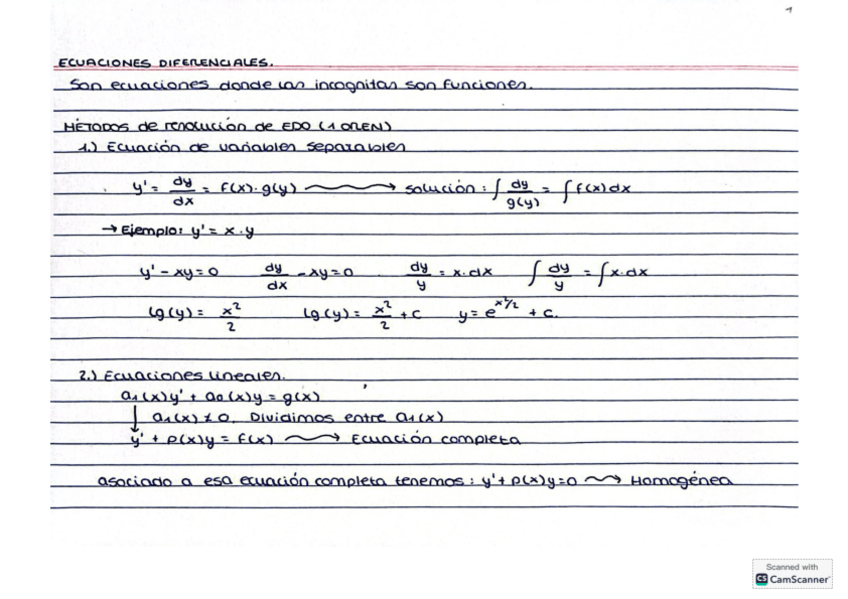 1
ECUACIONES DIFERENCIALES.
Son ecuaciones donde las incognitas son funciones.
MÉTODOS de resolución de EDO (1 OREN)
1.) Ecuación de variables separables
y' = dy/dx = f(x)·g(y) ⟿ solución: ∫ dy/g(y) = ∫ f(x)dx
→ Ejemplo: y' = x·y
y' - xy = 0 dy/dx - xy = 0 dy/y = x·dx ∫ dy/y = ∫ x·dx
lg(y) = x²/2 lg(y) = x²/2 + c y = e^(x²/2) + c.
2.) Ecuaciones lineales.
a₁(x)y' + a₀(x)y = g(x)
↓ a₁(x) ≠ 0. Dividimos entre a₁(x)
y' + p(x)y = f(x) ⟿ Ecuación completa
asociado a esa ecuación completa tenemos: y' + p(x)y = 0 ⟿ Homogénea
Scanned with
CS CamScanner